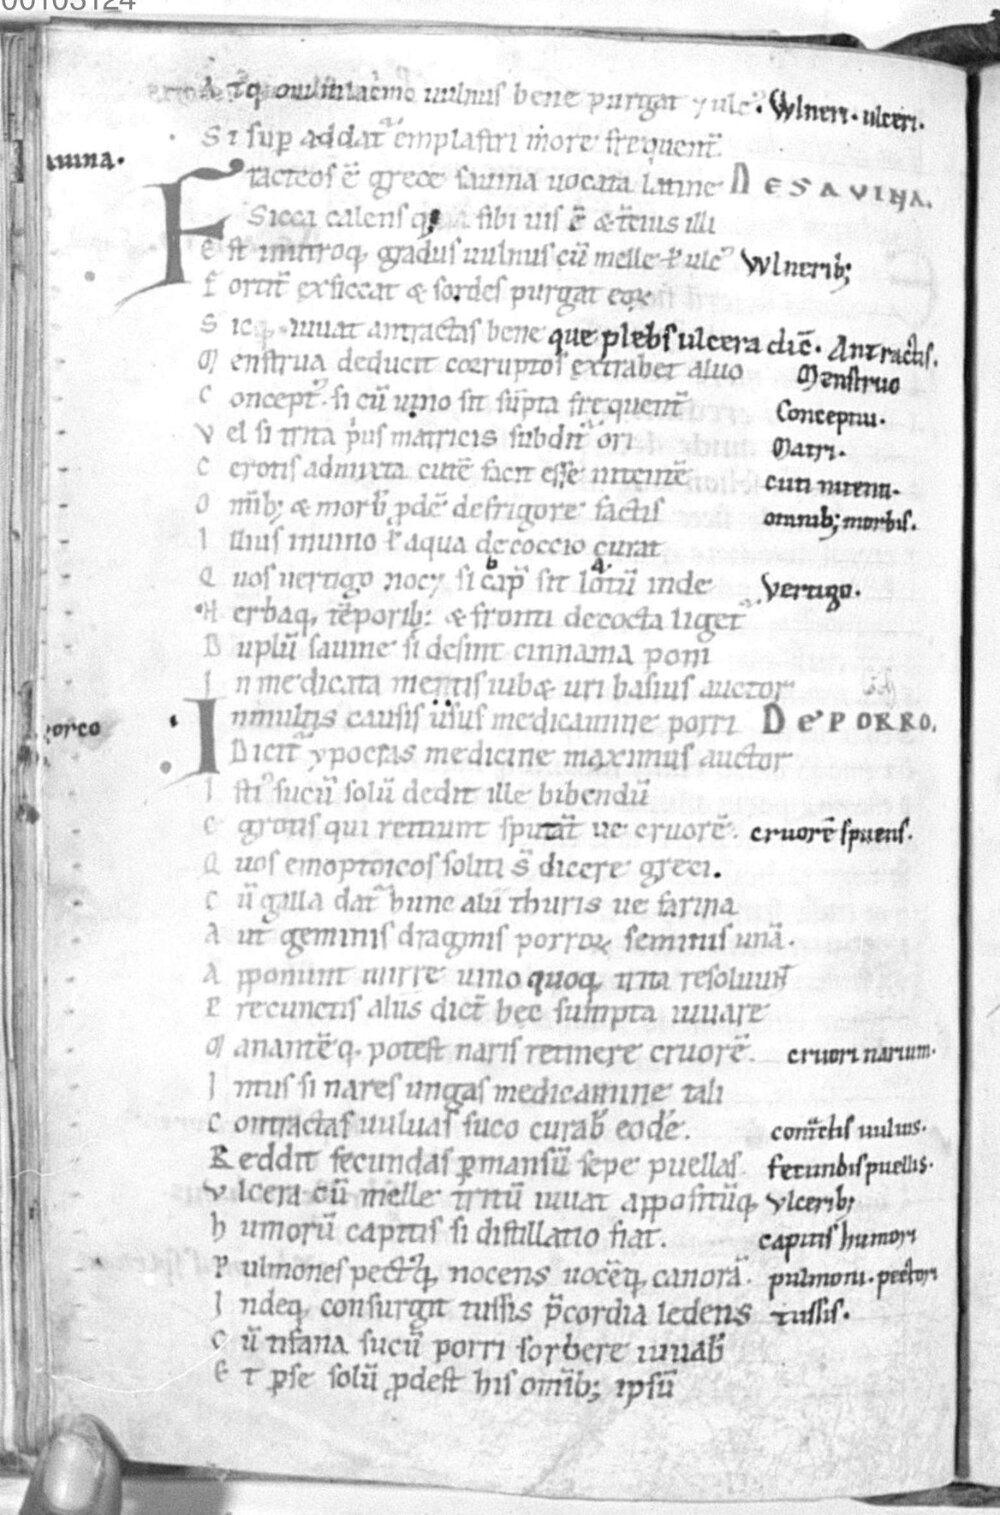 00103124
bene purgat Vulneri. ulceri.
S i sup addat emplastri more frequent
uina.
racteos ē grece sauina uocata latine DE SAVINA.
Sicca calens sibi uis ē & tcius illi
E st introq, gradus uulnus cū melle ł ulc Vulnerib;
F ortit exsiccat & sordes purgat eoꝝ
S icq, iuuat antractas bene que plebs ulcera dic̄. Antractis.
M enstrua deducit corruptos extrahet aluo Menstruo
C oncept. si cū uino sit sūpta frequent̄ Conceptui.
V el si trita p̄us matricis subdit ori Matri.
C erotis admixta cutē facit esse nitentē cuti nitenti.
O mib; & morb pdē de frigore factis omnib; morbis.
I llius inuino ł aqua decoccio curat
Q uos uertigo nocz si cap̄ sit lotū inde Vertigo.
H erbaq, tēporib; & fronti decocta liget
D uplū sauine si desint cinnama poni
I n medicata mentis iub& uri basius auctor
porro
I nmultis causis usus medicamine porri DE PORRO.
Dicit ypocras medicine maximus auctor
I sti sucū solū dedit ille bibendū
E grotis qui reitiunt sputāt ue cruorē. cruorē spuens.
Q uos emoptoicos soliti s̄ dicere greci.
C ū galla dat hunc aliī thuris ue farina
A ut geminis dragmis porroꝝ seminis unā.
A pponunt mirre uino quoq, trita resoluunt
P re cunctis aliis dict hec sumpta iuuare
M anantēq. potest naris retinere cruorē. cruori narium.
I ntus si nares ungas medicamine tali
C ontractas uuluas suco curab eodē. contctis uuluis.
R eddit fecundas pmansū sepe puellas. fecundis puellis.
V lcera cū melle tritū iuuat appositūq, Vlcerib;
H umorū capitis si distillatio fiat. capitis humori
P ulmones pect'q, nocens uocēq, canorā. pulmoni. pectori
I ndeq, consurgit tussis p̄cordia ledens tussis.
C ū tisana sucū porri sorbere iuuab
E t p se solū pdest his omīb; ipsū